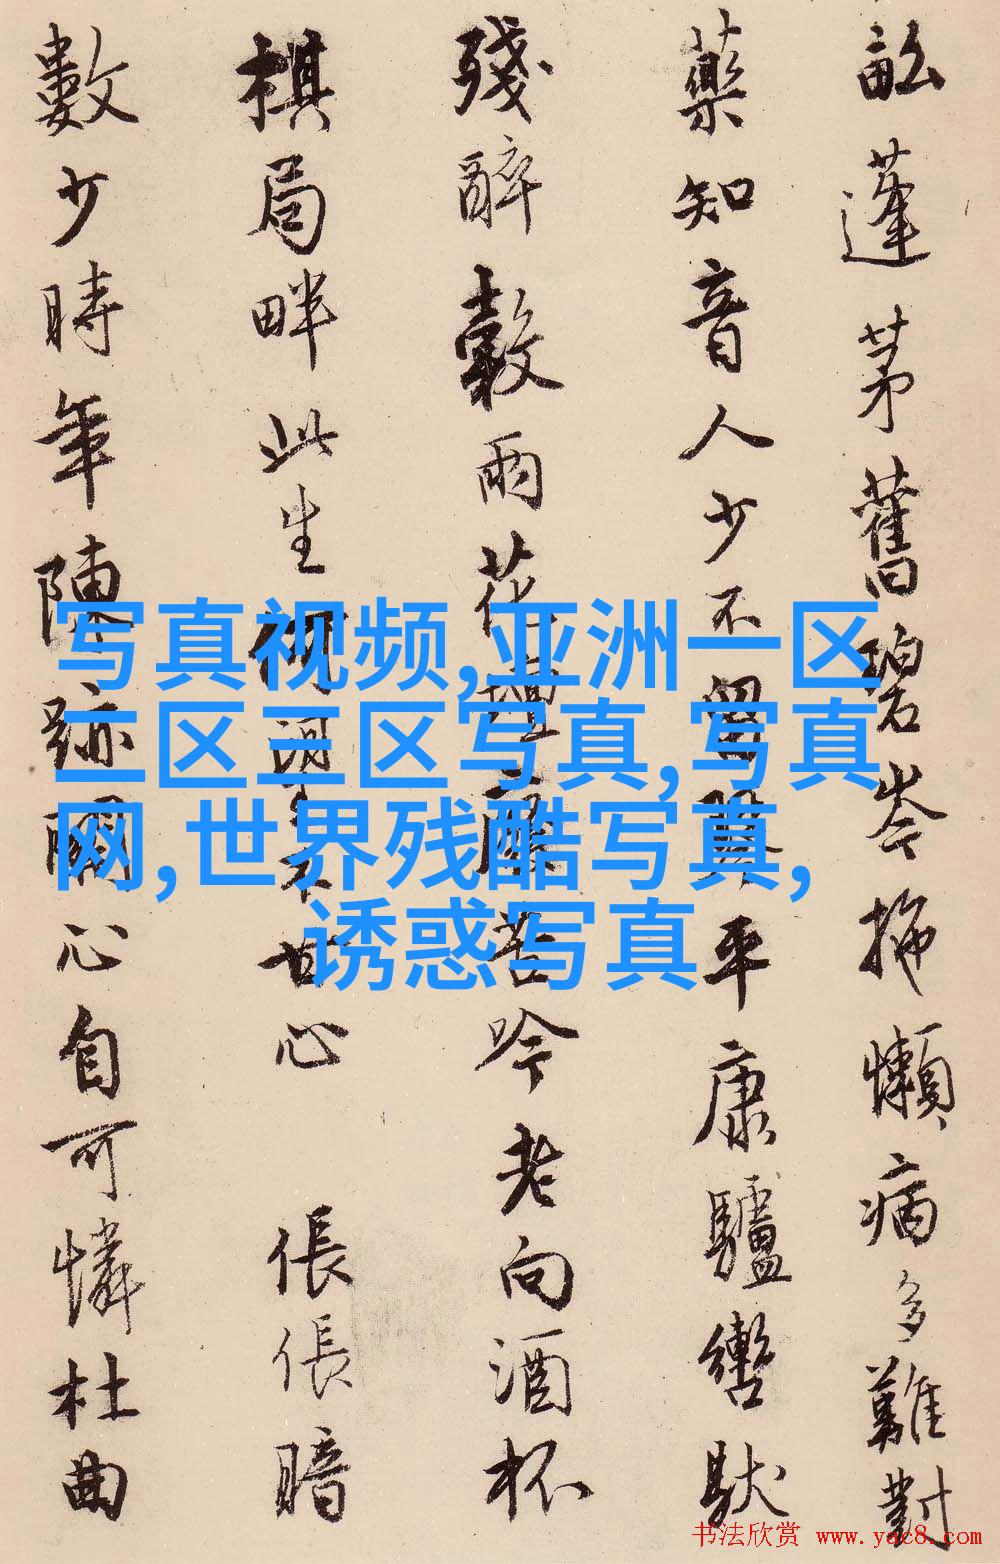 畝蓬茅舊碧岑拖懶病多難對
藥知音人少不留平康驢轡馱
殘醉穀雨花壇苦吟老向酒杯
棋局畔此生何不甘心 悵悵暗
數少時年陳跡關心自可憐杜曲
写真视频,亚洲一区
二区三区写真,写真
网,世界残酷写真,
诱惑写真
书法欣赏 www.yac8.com